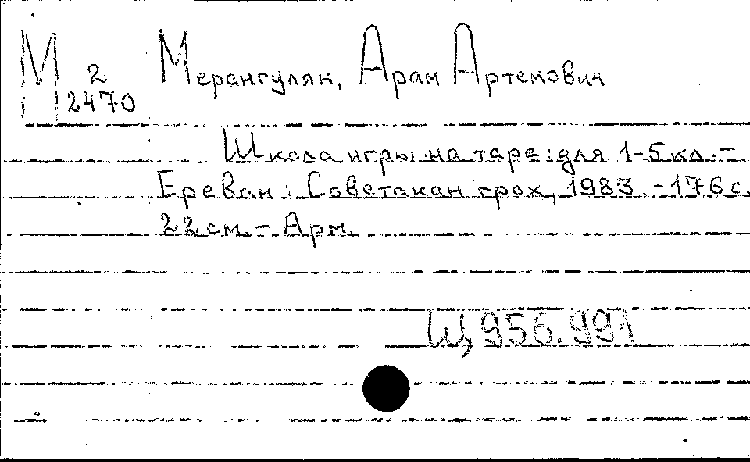 М 2
2470
Мерангулян, Арам Артемович
Школа игры на таре: для 1-5 кл. -
Ереван: Советакан грох, 1983. - 176 с.
22 см. - Арм.
Щ 956.991